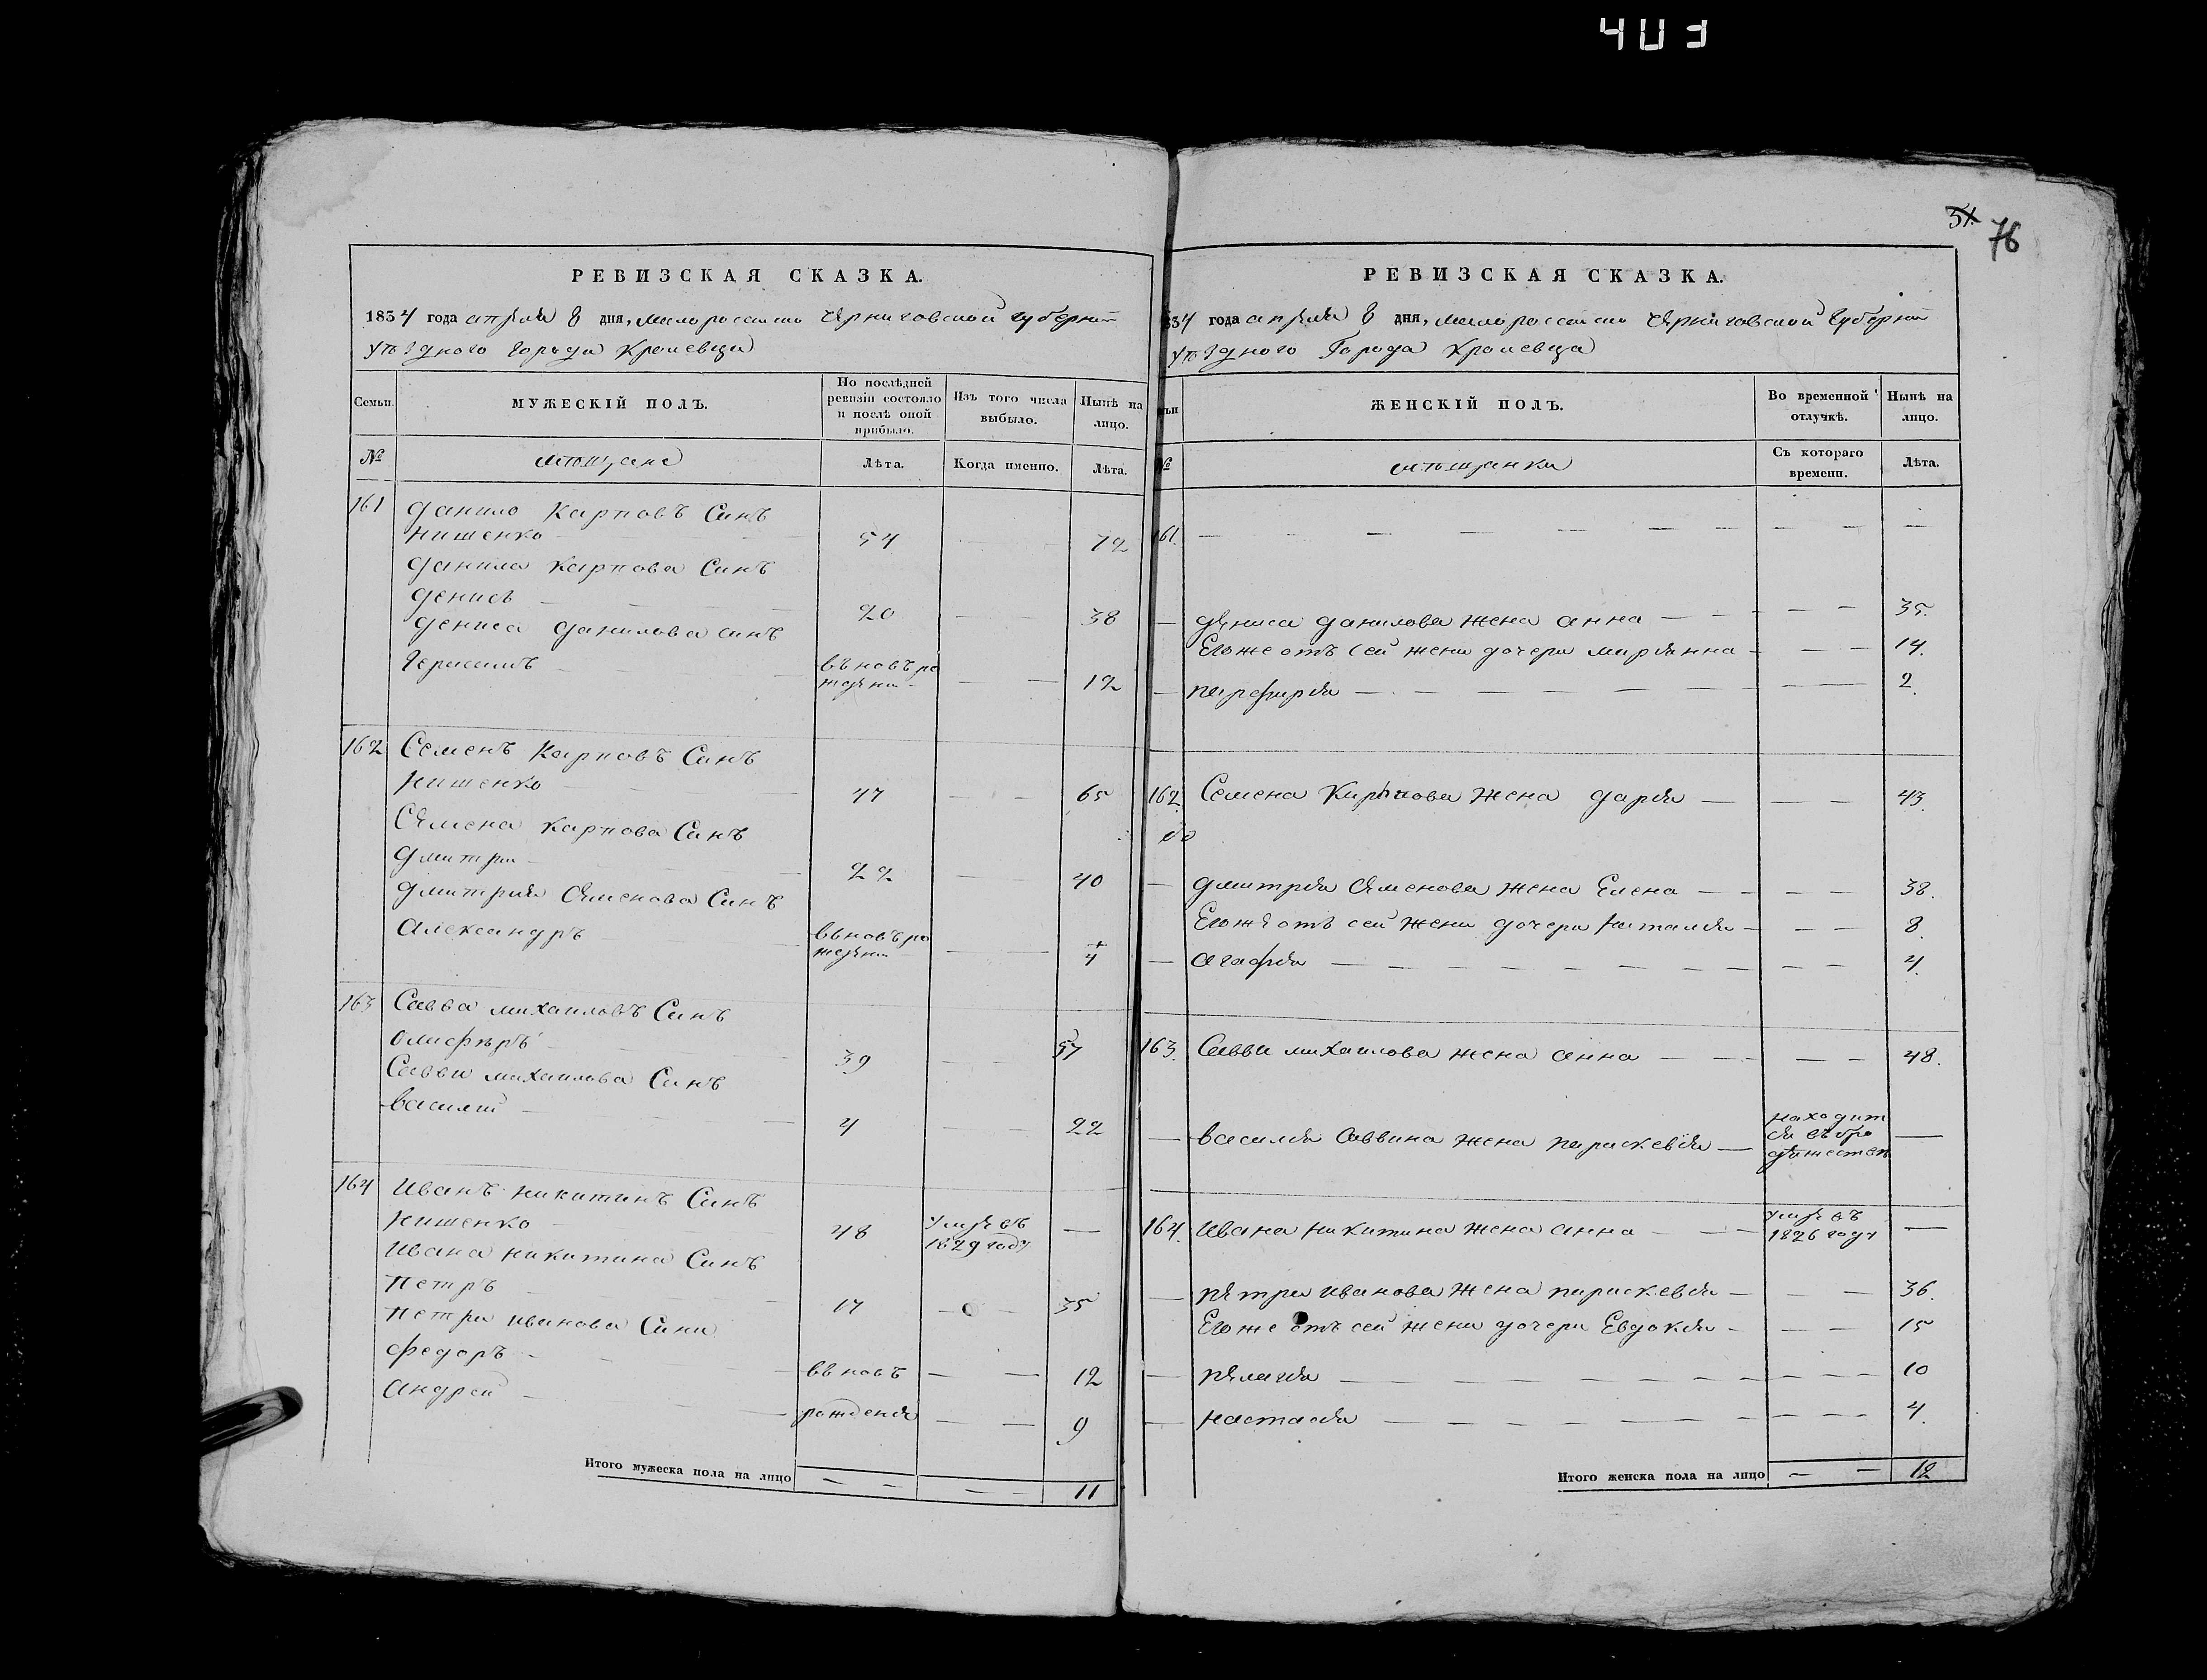 403
51. 76
РЕВИЗСКАЯ СКАЗКА.
1834 года апреля 8 дня, малороссиско Черниговской губернии
уѣздного города Кролевца
Семьи. МУЖЕСКІЙ ПОЛЪ. По послѣдней ревизіи состояло и послѣ оной прибыло. Изъ того числа выбыло. Нынѣ на лицо.
№ мѣщане Лѣта. Когда именно. Лѣта.
161 Данило Карповъ Синъ
Нишенко — 54 — — 72
Данила Карпова Синъ
Денисъ — 20 — — 38
Дениса Данилова синъ
Герасимъ — вьновъ ро
жденн — — — 12
162 Семенъ Карповъ Синъ
Нишенко — 47 — — 65
Семена Карпова Синъ
Дмитри — 22 — — 40
Дмитрия Семенова Синъ
Александръ — вьновъ ро
жденн — — — 4
163 Савва михаиловъ Синъ
Олисфѣръ — 39 — — 57
Савви михаилова Синъ
Василий — 4 — — 22
164 Иванъ Никитинъ Синъ
Нишенко — 48 умре въ
1829 году —
Ивана Никитина Синъ
Петръ — 17 — — 35
Петра Иванова Сини
Федоръ — вьновъ — — 12
Андрей — рождения — — 9
Итого мужеска пола на лицо — — — — 11
РЕВИЗСКАЯ СКАЗКА.
34 года апреля 8 дня, малороссиско Черниговской Губернии
уѣздного Города Кролевца
ьи ЖЕНСКІЙ ПОЛЪ. Во временной отлучкѣ. Нынѣ на лицо.
№ мѣщанки Съ котораго времени. Лѣта.
161. — — — — — — — — — —
— Дениса Данилова жена анна — — — — 35.
Егоже отъ сей жени дочери мариянна — — — 14.
— парфирия — — — — — — 2.
162. Семена Карпова жена дария — — — 43.
— Дмитрия Семенова жена Елена — — — — 38.
Егоже отъ сей жени дочери Наталия — — — 8.
— агафия — — — — — — — — — — 4.
163. Савви михаилова жена анна — — — — 48.
— василия Саввина жена параскевия — находит
ся въ бро
дяжествѣ —
164. Ивана Никитина жена анна — — умре въ
1826 году —
— петра иванова жена параскевия — — — 36.
Егоже отъ сей жени дочери Евдокия — — — 15
— пелагия — — — — — — — — — — 10
— настасия — — — — — — — — — — 4.
Итого женска пола на лицо — — 12